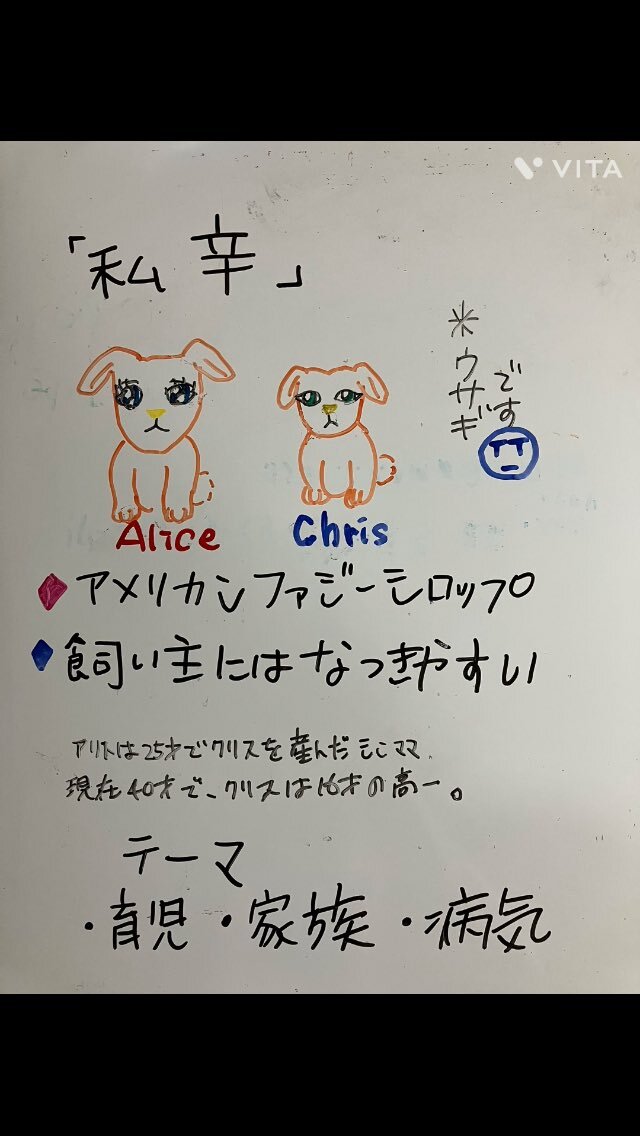 VITA
「私 辛」
＊ウサギです
Alice
Chris
アメリカンファジーシロップ
飼い主にはなつきやすい
アリスは25才でクリスを産んだママ、
現在40才で、クリスは16才の高一。
テーマ
・育児・家族・病気